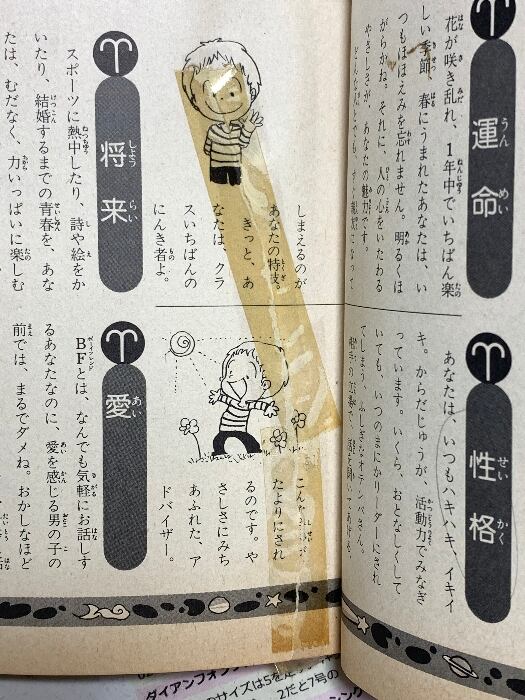 運命
花が咲き乱れ、1年中でいちばん楽
しい季節、春にうまれたあなたは、い
つもほほえみを忘れません。明るくほ
がらかね。それに、人の心をいたわる
やさしさが、あなたの魅力です。
どんな人とでも、すぐ
しまえるのが
あなたの特技。
きっと、あ
なたは、クラ
スいちばんの
にんき者よ。
将来
スポーツに熱中したり、詩や絵をか
いたり、結婚するまでの青春を、あな
たは、むだなく、力いっぱいに楽しむ
性格
あなたは、いつもハキハキ、イキイ
キ。からだじゅうが、活動力でみなぎ
っています。いくら、おとなしくして
いても、いつのまにかリーダーにされ
てしまう、ふしぎなオテンバさん。
相手の立場で、話を聞いてあげる。
こんな
たよりにされ
るのです。や
さしさにみち
あふれた、ア
ドバイザー。
愛
BFとは、なんでも気軽にお話しす
るあなたなのに、愛を感じる男の子の
前では、まるでダメね。おかしなほど
ダイアンフォ
のサイズは5を
2だと7号の